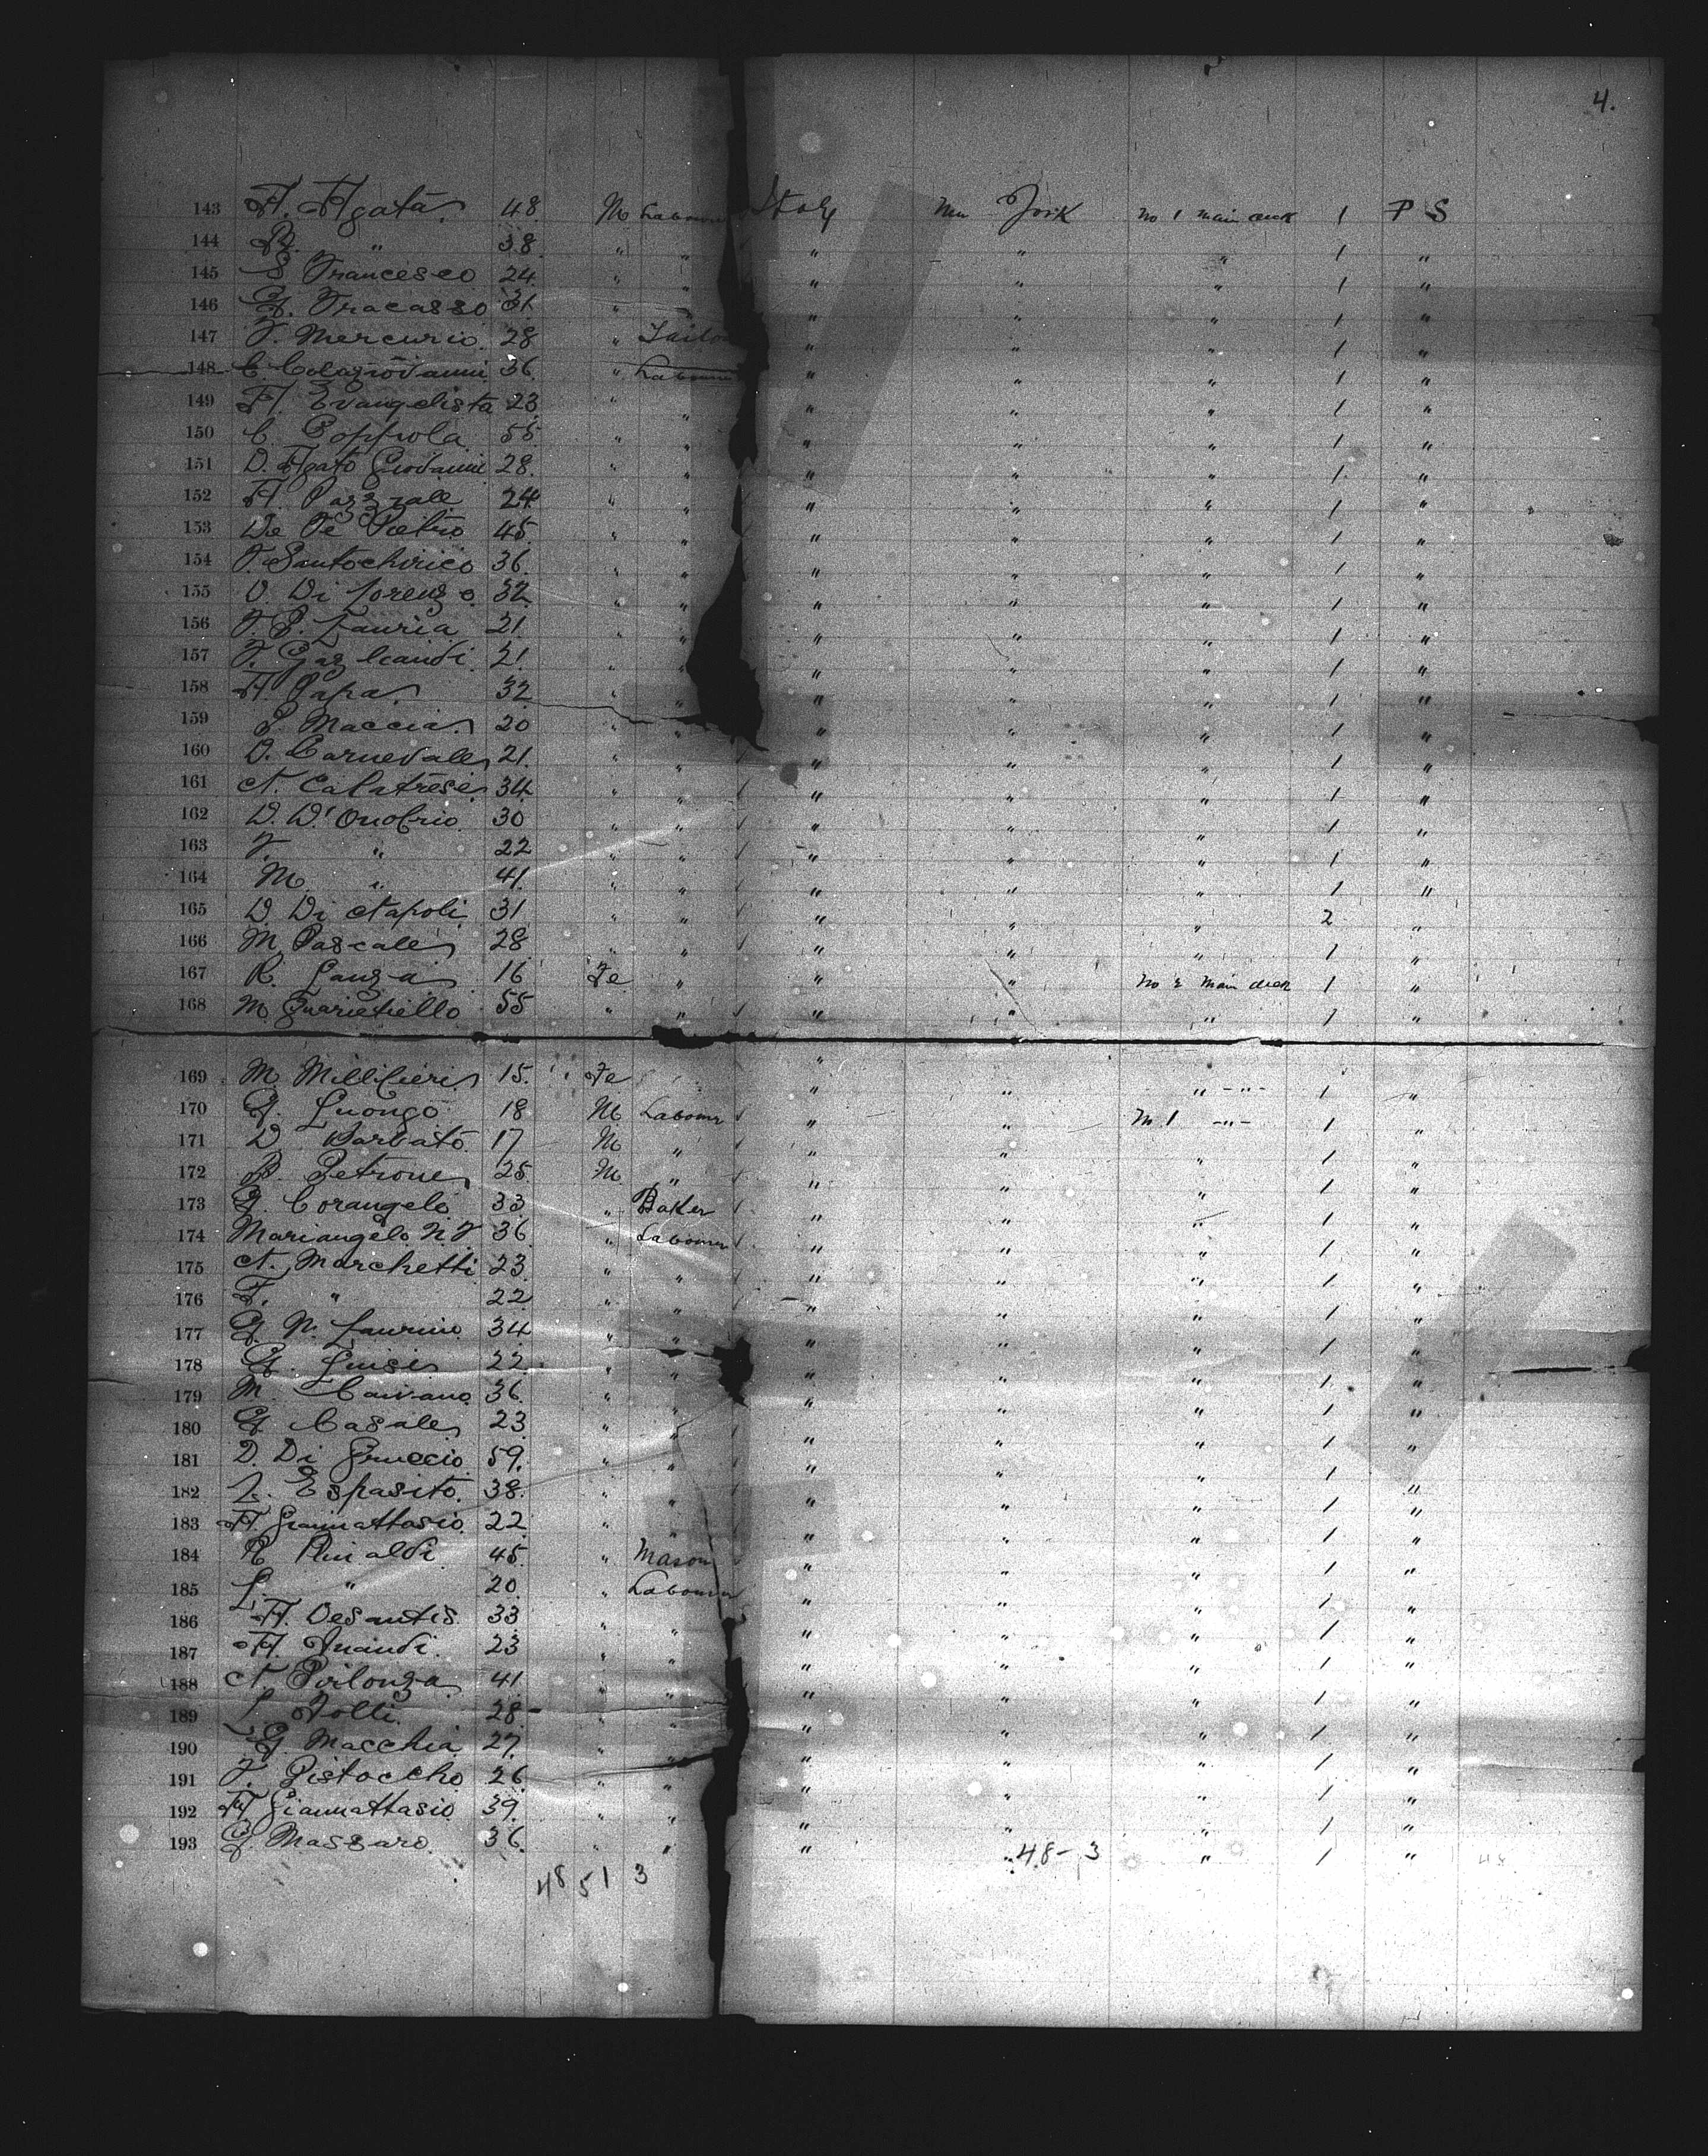 4.
143 A. Agata 48 M Labourer Italy New York No 1 main deck 1 P S
144 B. " 38 " " " " " 1 "
145 S Francesco 24 " " " " " 1 "
146 G. Fracasso 31 " " " " " 1 "
147 F. Mercurio 28 " Tailor " " " 1 "
148 C. Colagiovanni 36 " Labourer " " " 1 "
149 A. Evangelista 23 " " " " " 1 "
150 C. Coppola 55 " " " " " 1 "
151 D. Agato Giovanni 28 " " " " " 1 "
152 A. Pazzale 24 " " " " " 1 "
153 De Fe Pietro 45 " " " " " 1 "
154 F. Santochirico 36 " " " " " 1 "
155 V. Di Lorenzo 32 " " " " " 1 "
156 F. P. Lauria 21 " " " " " 1 "
157 F. Gagliandi 21 " " " " " 1 "
158 A. Papa 32 " " " " " 1 "
159 P. Maccia 20 " " " " " 1 "
160 V. Carnevale 21 " " " " " 1 "
161 N. Calatrese 34 " " " " " 1 "
162 D. D'Onofrio 30 " " " " " 1 "
163 F. " 22 " " " " " 1 "
164 M. " 41 " " " " " 1 "
165 D. Di Napoli 31 " " " " " 2 "
166 M. Pascale 28 " " " " " 1 "
167 R. Ganza 16 Fe " " " No 2 Main deck 1 "
168 M. Guarietiello 55 " " " " " 1 "
169 M. Millifieri 15 Fe " " " -"- 1 "
170 G. Luongo 18 M Labourer " " No 1 -"- 1 "
171 D. Barbato 17 M " " " " 1 "
172 B. Petrone 25 M " " " " 1 "
173 G. Corangelo 33 " Baker " " " 1 "
174 Mariangelo N. F 36 " Labourer " " " 1 "
175 N. Marchetti 23 " " " " " 1 "
176 F. " 22 " " " " " 1 "
177 G. N. Laurino 34 " " " " " 1 "
178 G. Luise 22 " " " " " 1 "
179 M. Caivano 36 " " " " " 1 "
180 G. Casale 23 " " " " " 1 "
181 D. Di Gruccio 59 " " " " " 1 "
182 L. Esposito 38 " " " " " 1 "
183 A. Giannattasio 22 " " " " " 1 "
184 R. Rinaldi 45 " Mason " " " 1 "
185 L. " 20 " Labourer " " " 1 "
186 A. Desantis 33 " " " " " 1 "
187 A. 23 " " " " " 1 "
188 N. Pirlonza 41 " " " " " 1 "
189 L. Folli 28 " " " " " 1 "
190 G. Macchia 27 " " " " " 1 "
191 F. Pistocchio 26 " " " " " 1 "
192 A. Giannattasio 39 " " " " " 1 "
193 G. Massaro 36 " " " " " 1 "
48 51 3 48-3 48